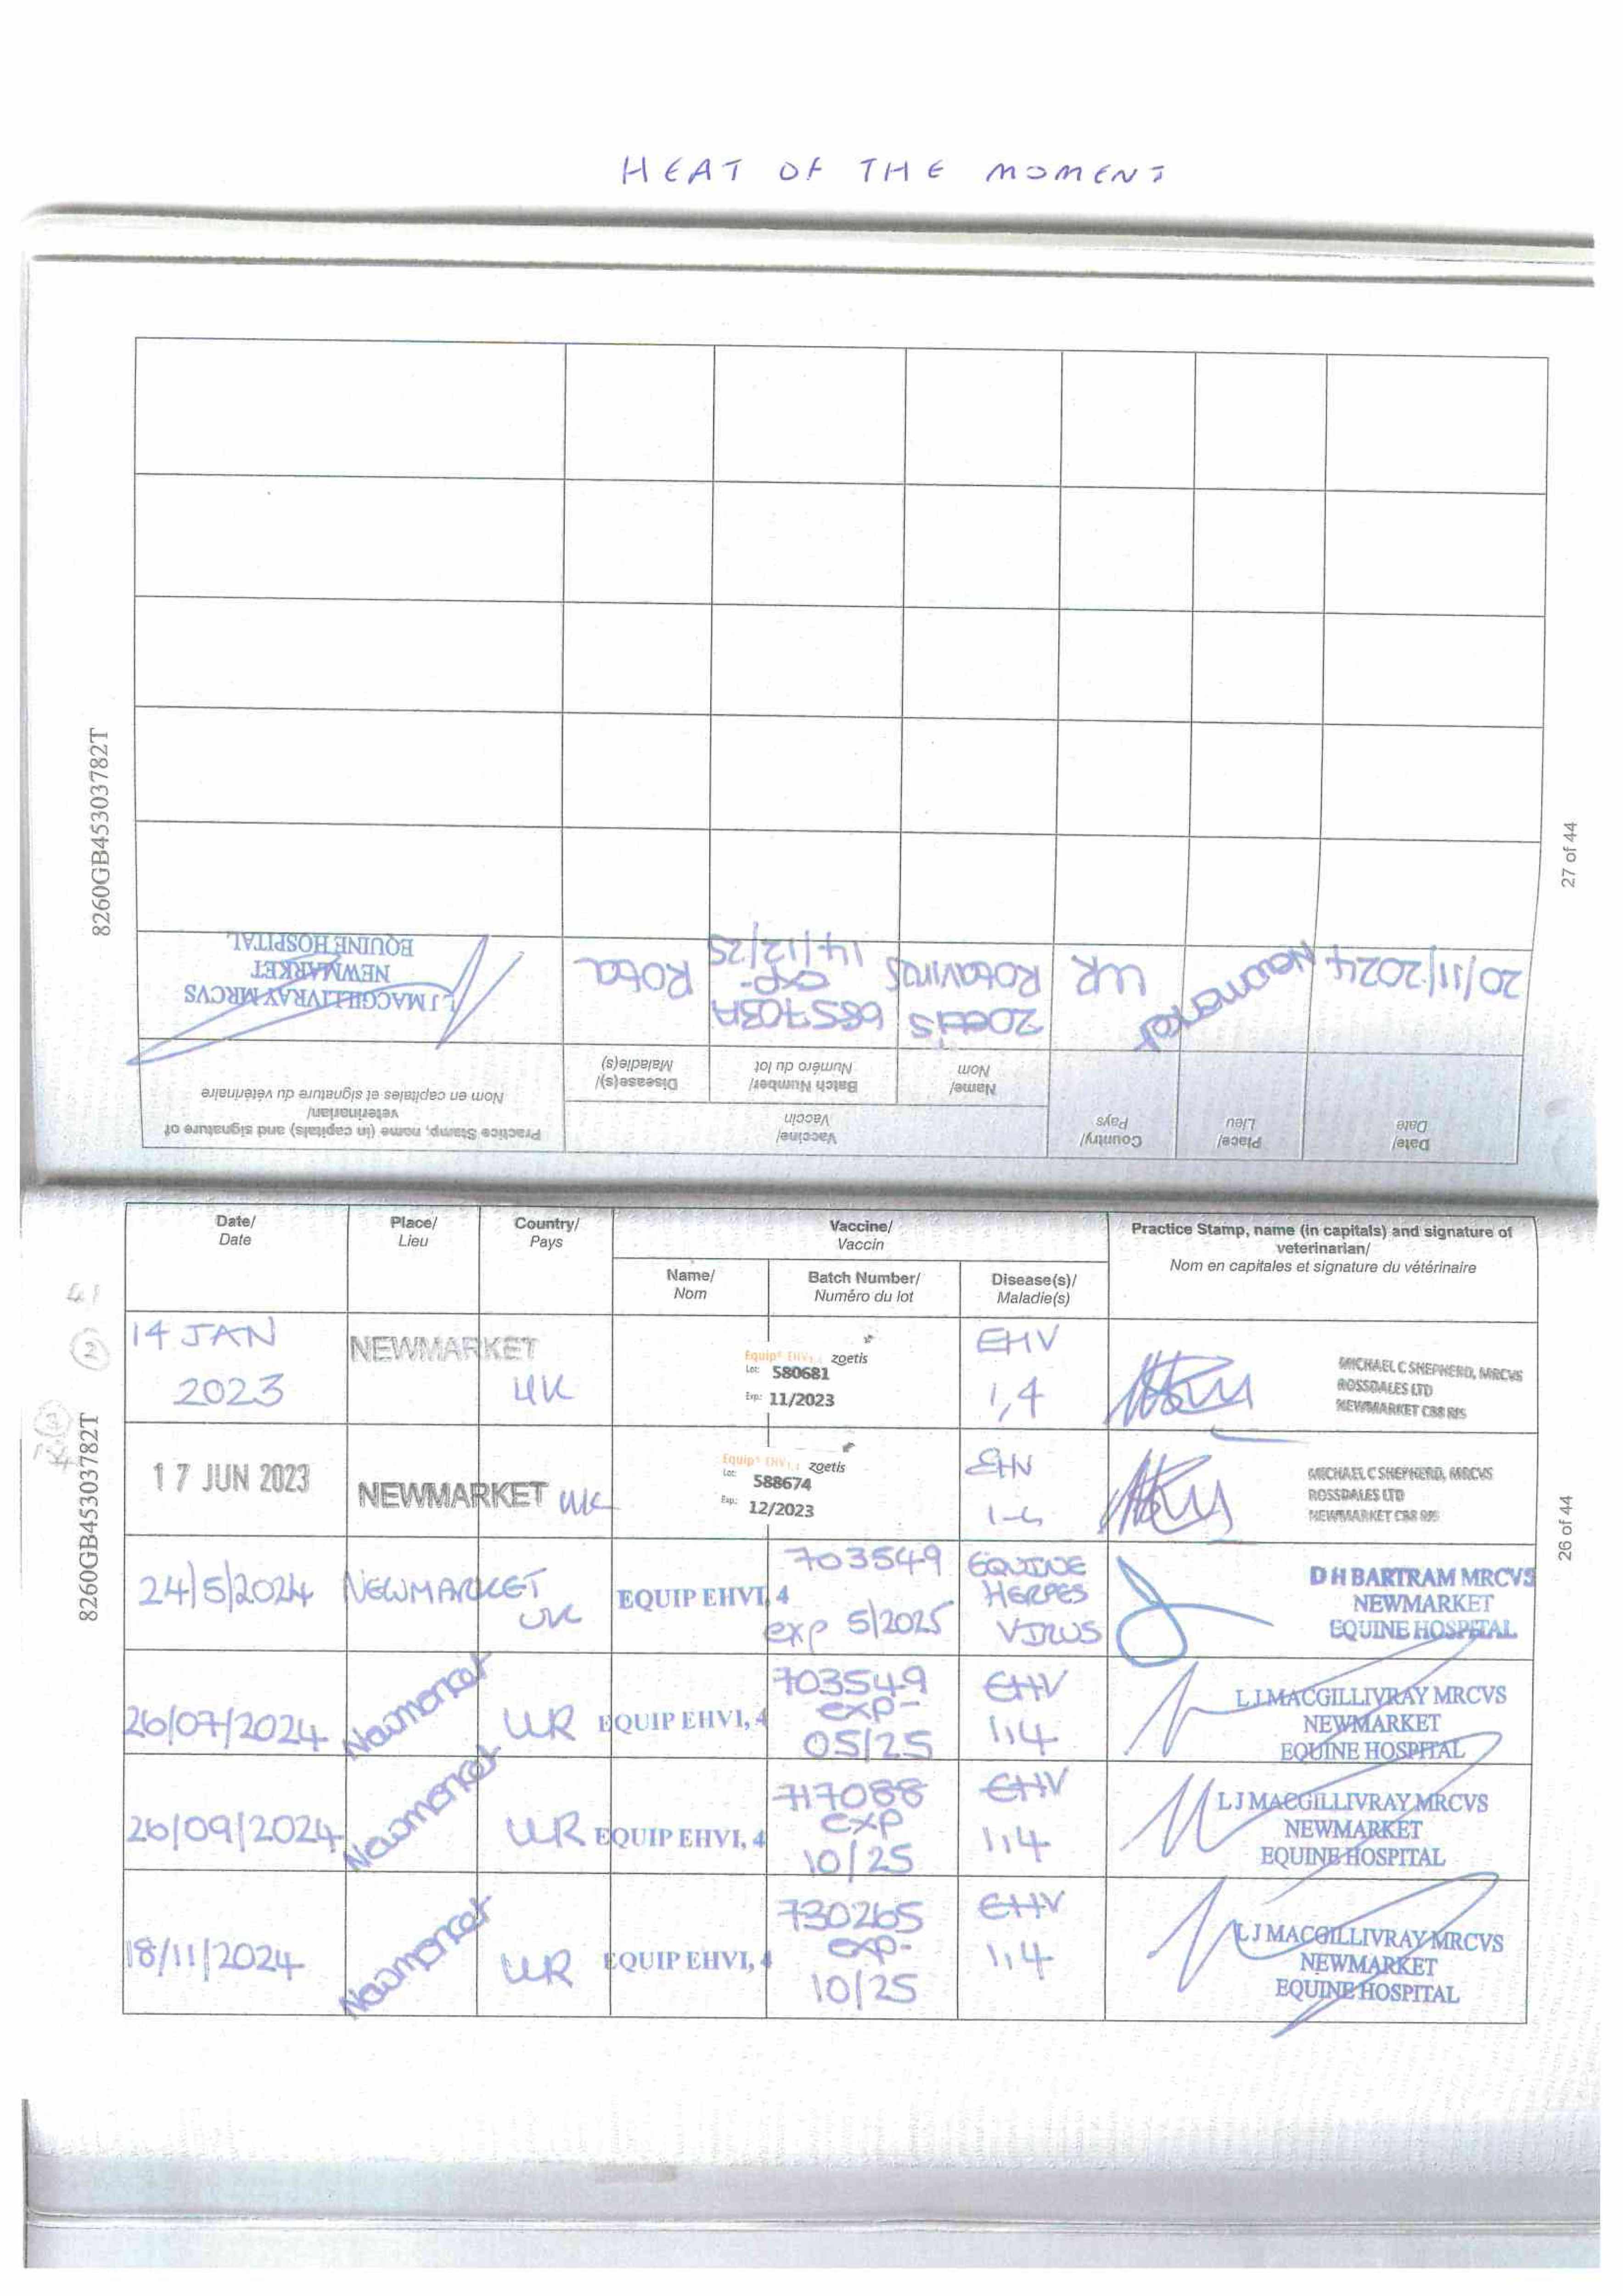 HEAT OF THE MOMENT
8260GB45303782T
27 of 44
Date/ Date
Place/ Lieu
Country/ Pays
Vaccine/ Vaccin
Name/ Nom
Batch Number/ Numéro du lot
Disease(s)/ Maladie(s)
Practice Stamp, name (in capitals) and signature of veterinarian/
Nom en capitales et signature du vétérinaire
20/11/2024 Newmarket UK Zoetis Rotavirus 685703A exp- 14/12/25 Rota
L J MACGILLIVRAY MRCVS
NEWMARKET
EQUINE HOSPITAL
8260GB45303782T
26 of 44
Date/ Date
Place/ Lieu
Country/ Pays
Vaccine/ Vaccin
Name/ Nom
Batch Number/ Numéro du lot
Disease(s)/ Maladie(s)
Practice Stamp, name (in capitals) and signature of veterinarian/
Nom en capitales et signature du vétérinaire
14 JAN 2023 NEWMARKET UK Equip EHV1,4 zoetis Lot: 580681 Exp: 11/2023 EHV 1,4
MICHAEL C SHEPHERD, MRCVS
ROSSDALES LTD
NEWMARKET CB8
17 JUN 2023 NEWMARKET UK Equip EHV1,4 zoetis Lot: 588674 Exp: 12/2023 EHV 1-4
MICHAEL C SHEPHERD, MRCVS
ROSSDALES LTD
NEWMARKET CB8
24/5/2024 NEWMARKET UK EQUIP EHV1,4 703549 exp 5/2025 EQUINE HERPES VIRUS
D H BARTRAM MRCVS
NEWMARKET
EQUINE HOSPITAL
26/07/2024 Newmarket UK EQUIP EHV1,4 703549 exp- 05/25 EHV 1,4
L J MACGILLIVRAY MRCVS
NEWMARKET
EQUINE HOSPITAL
26/09/2024 Newmarket UK EQUIP EHV1,4 717088 exp 10/25 EHV 1,4
L J MACGILLIVRAY MRCVS
NEWMARKET
EQUINE HOSPITAL
18/11/2024 Newmarket UK EQUIP EHV1,4 730265 exp- 10/25 EHV 1,4
L J MACGILLIVRAY MRCVS
NEWMARKET
EQUINE HOSPITAL